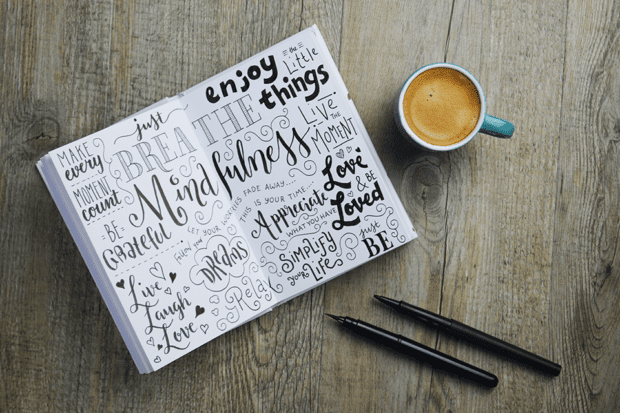 MAKE
every
MOMENT
count
BE
Grateful
just
BREATHE
Mindfulness
LET YOUR
FADE AWAY...
follow your
DREAMS
Live
Laugh
Love
Relax
enjoy
the
Little
things
LIVE
THE
MOMENT
THIS IS YOUR TIME
Appreciate
WHAT YOU HAVE
Love
& BE
Loved
Simplify
your Life
just
BE